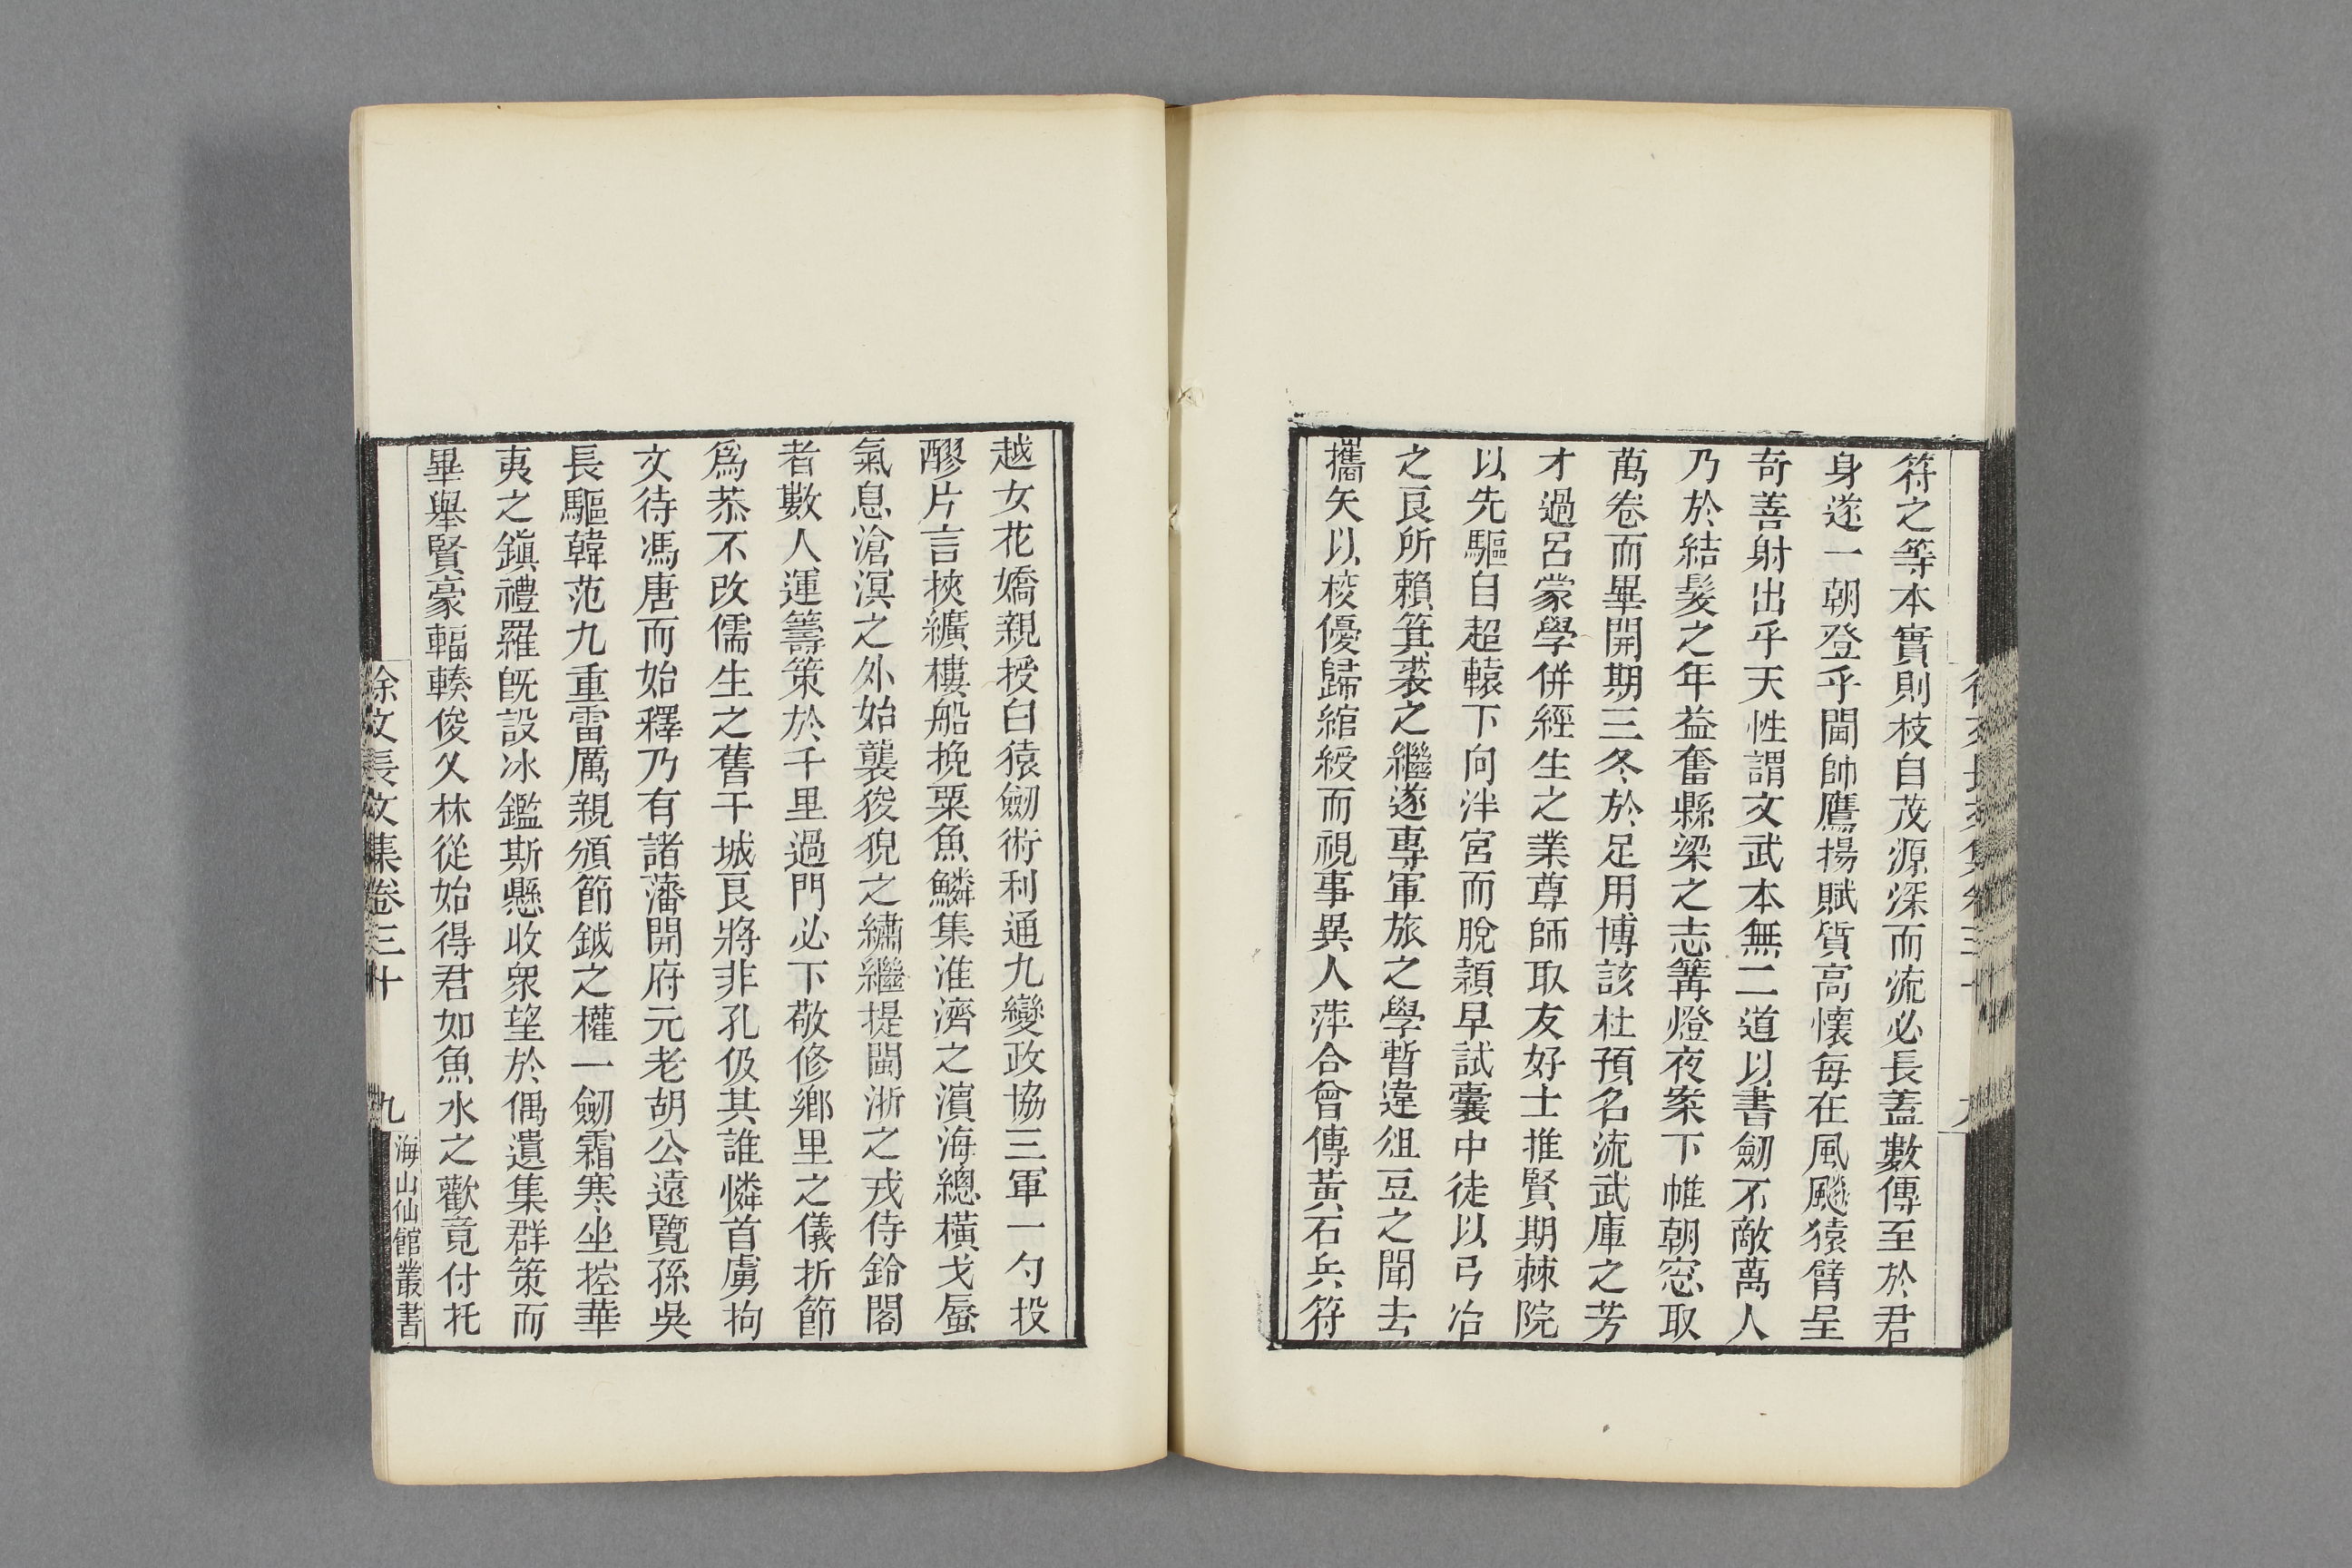 符之等本實則枝自茂源深而流必長蓋數傳至於君
身遂一朝登乎閫帥鷹揚賦質高懷每在風飈猿臂呈
奇善射出乎天性謂文武本無二道以書劒不敵萬人
乃於結髮之年益奮縣梁之志篝燈夜案下帷朝窓取
萬卷而畢開期三冬於足用博該杜預名流武庫之芳
才過呂蒙學併經生之業尊師取友好士推賢期棘院
以先驅自超轅下向泮宮而脫穎早試囊中徒以弓冶
之良所賴箕裘之繼遂專軍旅之學暫違俎豆之聞去
攜矢以棱優歸綰綬而視事異人萍合曾傳黃石兵符
越女花嬌親授白猿劒術利通九變政協三軍一勺投
醪片言挾纊樓船挽粟魚鱗集淮濟之濱海總橫戈蜃
氣息滄溟之外始襲狻猊之繡繼提閫浙之戎侍鈴閣
者數人運籌策於千里過門必下敬修鄉里之儀折節
爲恭不改儒生之舊干城良將非孔伋其誰憐首虜拘
文待馮唐而始釋乃有諸藩開府元老胡公遠覽孫吳
長驅韓范九重雷厲親頒節鉞之權一劒霜寒坐控華
夷之鎭禮羅旣設冰鑑斯懸收衆望於偶遺集群策而
畢舉賢豪輻輳俊乂林從始得君如魚水之歡竟付托
徐文長文集卷三十
九
海山仙館叢書